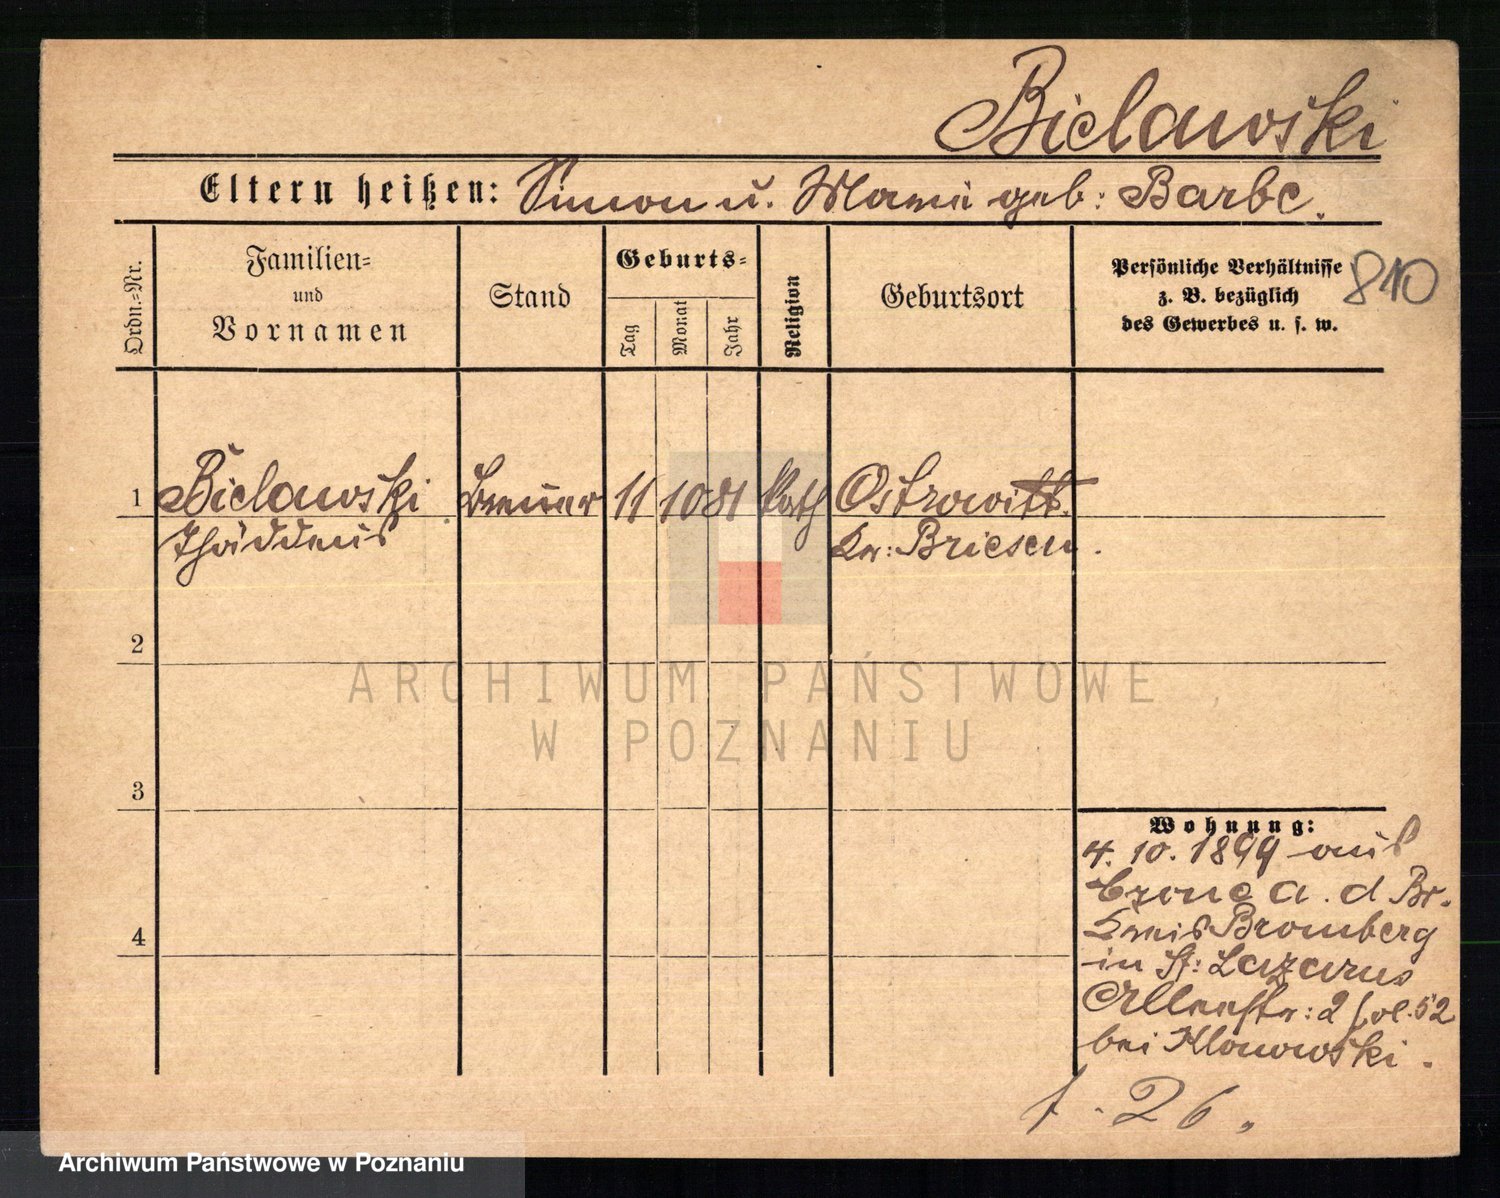 Bielawski
Eltern heißen: Simon u. Maria geb: Barbe.
Ordn.-Nr.
Familien-
und
Vornamen
Stand
Geburts-
Tag
Monat
Jahr
Religion
Geburtsort
Persönliche Verhältnisse
z. B. bezüglich
des Gewerbes u. s. w.
810
1 Bielawski 11 10 81 kath Ostrowitt.
Thaddeus Kr: Briesen.
2
3
4
ARCHIWUM PAŃSTWOWE
W POZNANIU
Wohnung:
4. 10. 1899 aus
Crone a. d Br.
Kreis Bromberg
in St: Lazarus
Alleestr: 2 fol. 52
bei Klonowski.
f. 26.
Archiwum Państwowe w Poznaniu